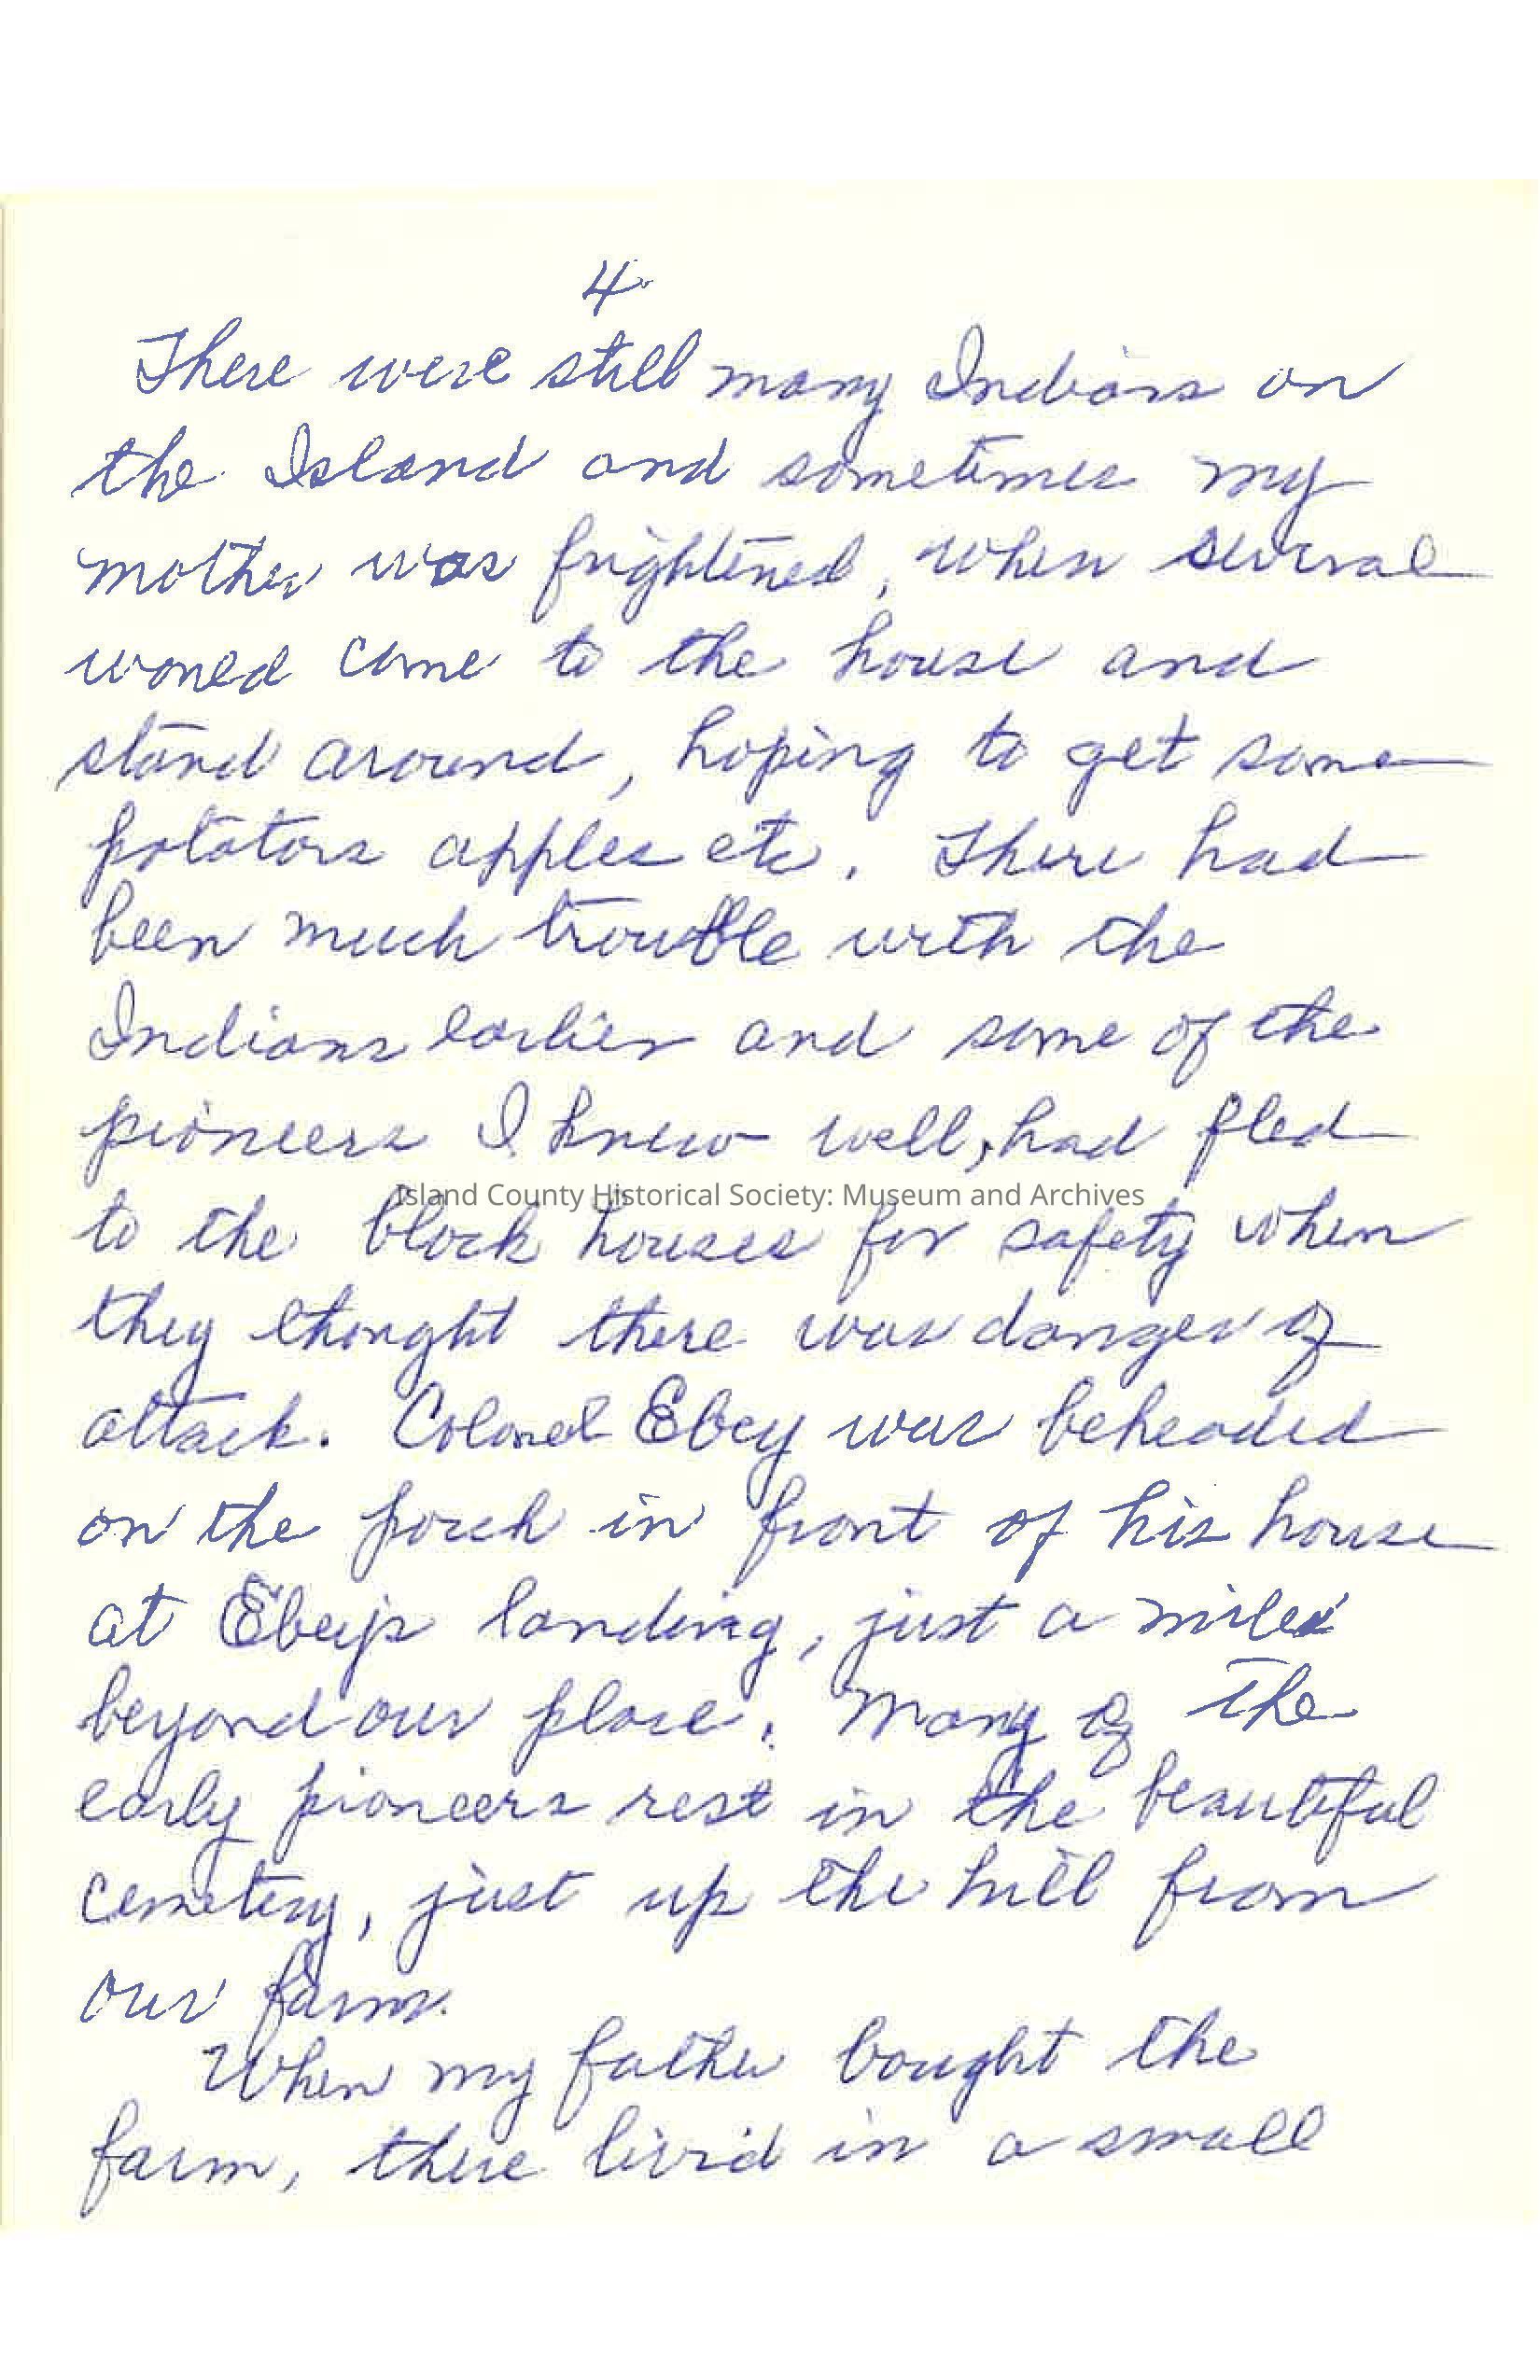 4
There were still many Indians on
the Island and sometimes my
mother was frightened, when several
would come to the house and
stand around, hoping to get some
potatoes apples etc. There had
been much trouble with the
Indians earlier and some of the
pioneers I knew well, had fled
Island County Historical Society: Museum and Archives
to the block houses for safety when
they thought there was danger of
attack. Colonel Ebey was beheaded
on the porch in front of his house
at Ebeys landing, just a mile
beyond our place. Many of the
early pioneers rest in the beautiful
cemetery, just up the hill from
our farm.
When my father bought the
farm, there lived in a small